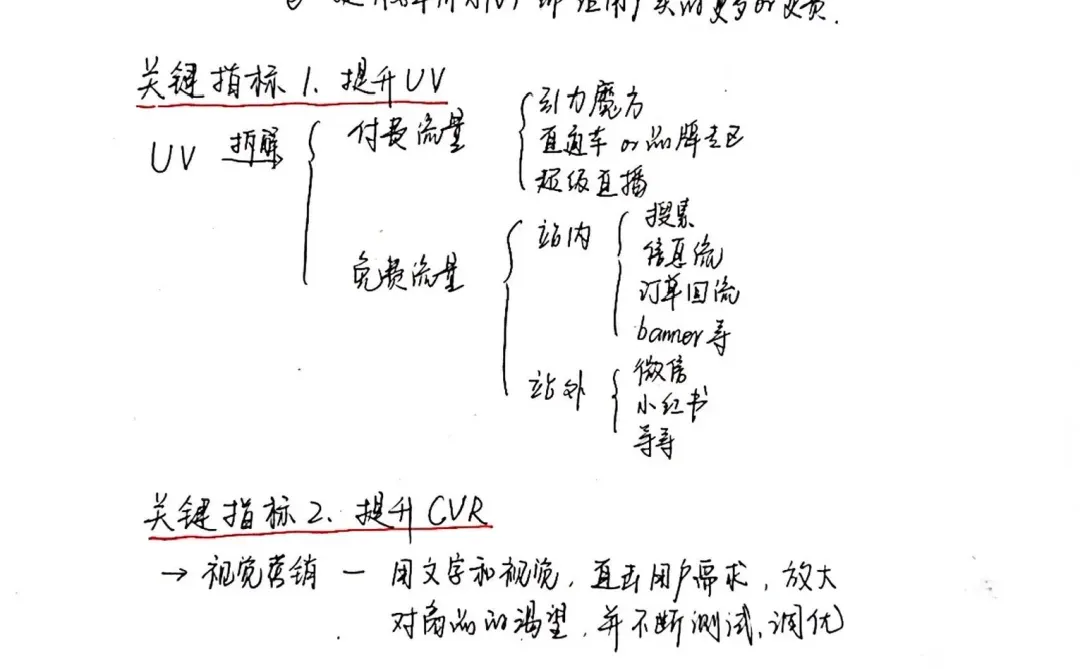 关键指标1. 提升UV
UV 拆解
付费流量
引力魔方
直通车 or 品牌专区
超级直播
免费流量
站内
搜索
信息流
订单回流
banner等
站外
微信
小红书
等等
关键指标2. 提升CVR
→ 视觉营销 — 用文字和视觉, 直击用户需求, 放大
对商品的渴望, 并不断测试、调优